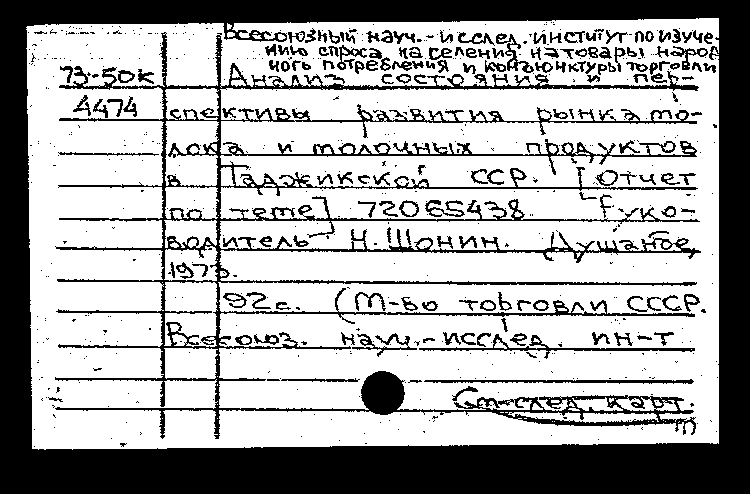 Всесоюзный науч.-исслед. институт по изуче-
нию спроса населения на товары народ
ного потребления и конъюнктуры торговли
73-50к Анализ состояния и пер-
4474 спективы развития рынка мо-
лока и молочных продуктов
в Таджикской ССР. [Отчет
по теме] 72065438. Руко-
водитель Н. Шонин. Душанбе,
1973.
92 с. (М-во торговли СССР.
Всесоюз. науч.-исслед. ин-т
См. след. карт.